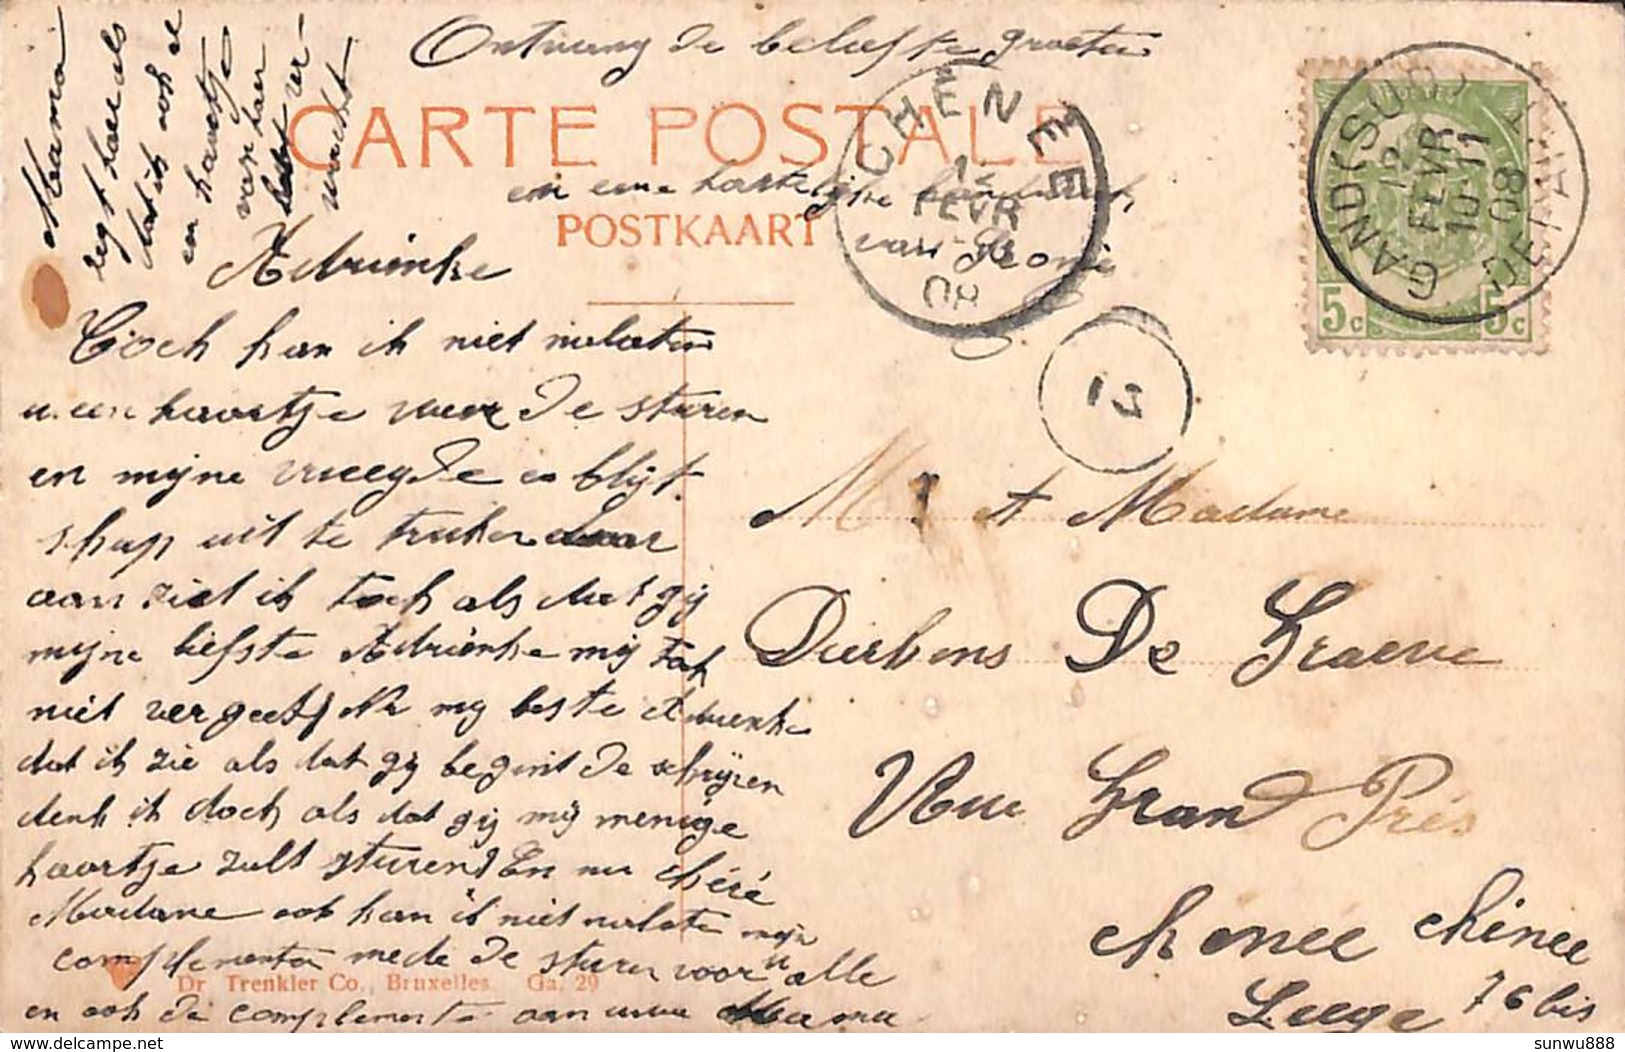 Ontvang de beliefste groeten
en eene hartelijke handdruk
van Leonie
Mama
zegt haar als
dat ik ook al
en kaartje
van haar
verwacht
CARTE POSTALE
POSTKAART
CHENEE
12
FEVR
08
GAND (SUD)
12
FEVR
10-11
08
DEPART
5c 5c
13
Adrienke
Toch kan ik niet nalaten
u een kaartje weer de sturen
en mijne vreegde en blijt
schap uit te truken daar
aan ziet ik toch als dat gij
mijne liefste Adrienke mij toch
niet vergeet Na my beste Adrienke
dat ik zie als dat gij begint de schrijven
denk ik doch als dat gij mij menige
kaartje zult sturen En nu chéré
Madame ook kan ik niet nalaten mijn
complementen mede de sturen voor u alle
en ook de complemente aan uwe Mama
Mr et Madame
Dierbens De Graeve
Rue Grand Prés
chenee Chênee
76 bis
Liege
Dr Trenkler Co., Bruxelles. Ga. 29
sunwu888